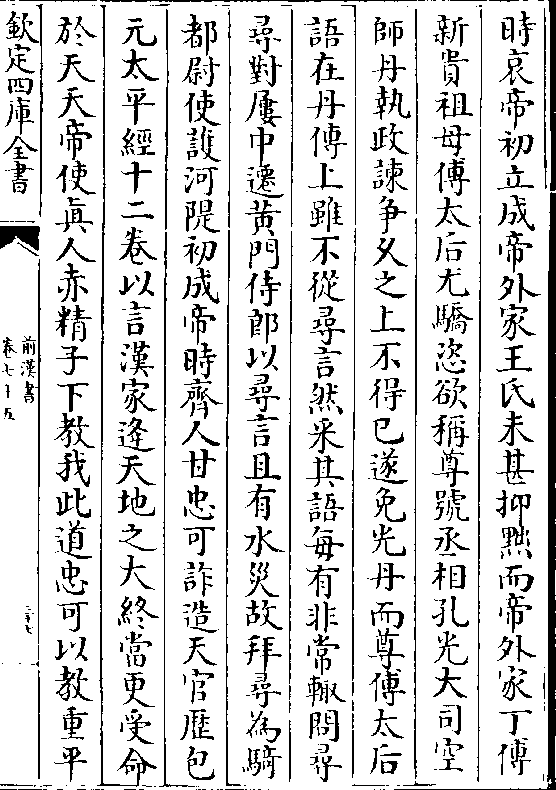 時哀帝初立成帝外家王氏未甚抑黜而帝外家丁傅
新貴祖母傅太后尤驕恣欲稱尊號丞相孔光大司空
師丹執政諫争乆之上不得已遂免光丹而尊傅太后
語在丹傳上雖不從尋言然采其語每有非常輒問尋
尋對屢中遷黄門侍郎以尋言且有水災故拜尋為騎
都尉使護河隄初成帝時齊人甘忠可詐造天官歴包
元太平經十二卷以言漢家逢天地之大終當更受命
於天天帝使真人赤精子下教我此道忠可以教重平
欽定四庫全書
前漢書
卷七十五
三十七